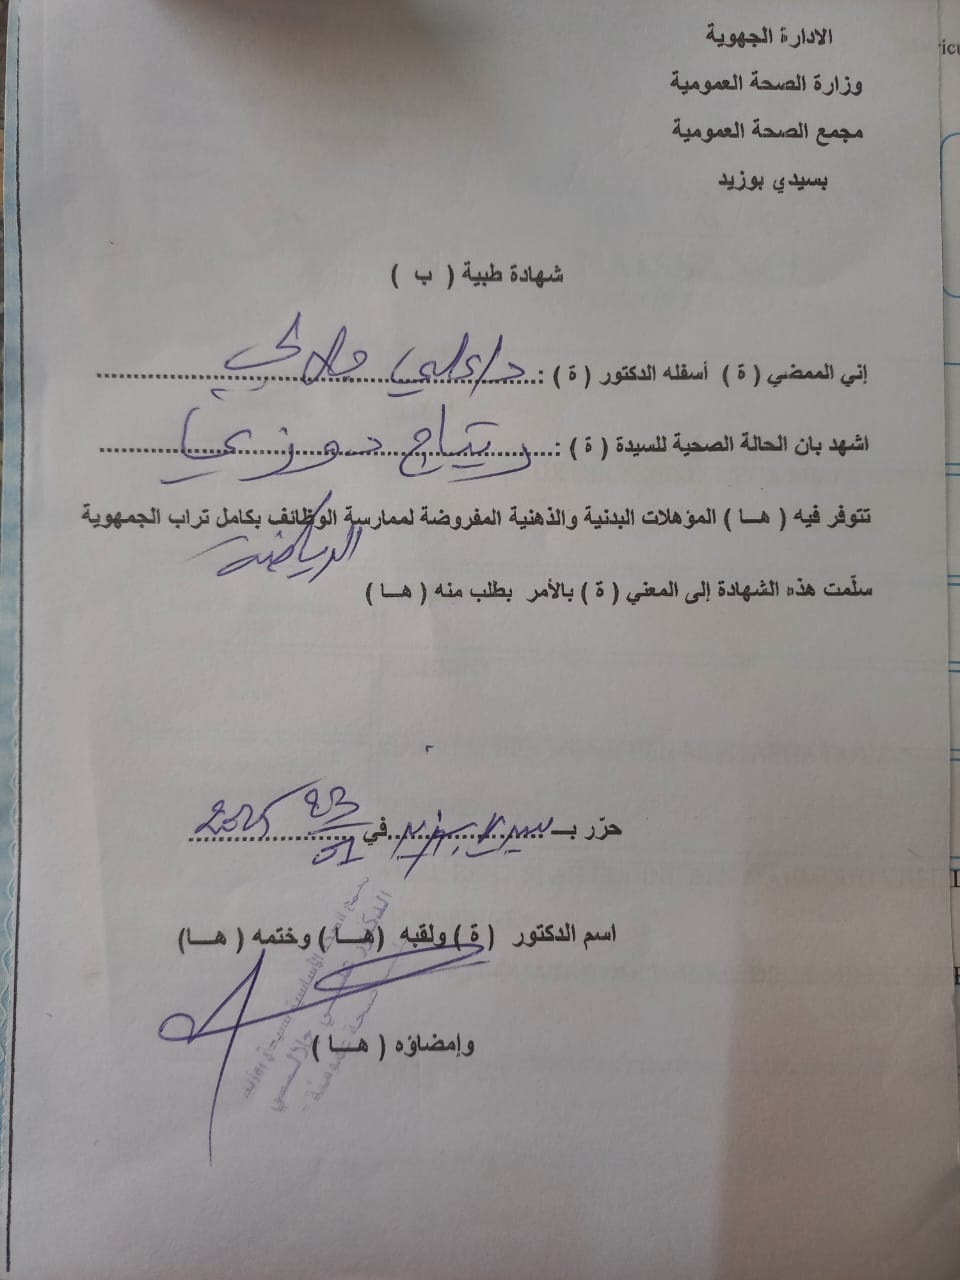 الادارة الجهوية
وزارة الصحة العمومية
مجمع الصحة العمومية
بسيدي بوزيد
شهادة طبية ( ب )
إني الممضي ( ة ) أسفله الدكتور ( ة ) :
اشهد بان الحالة الصحية للسيدة ( ة ) : ريتاج
تتوفر فيه ( هـا ) المؤهلات البدنية والذهنية المفروضة لممارسة الوظائف بكامل تراب الجمهوية
الرياضة
سلّمت هذه الشهادة إلى المعني ( ة ) بالأمر بطلب منه ( هـا )
حرّر بـ سيدي بوزيد في 23/01 2025
اسم الدكتور ( ة ) ولقبه (هـا ) وختمه ( هـا)
وإمضاؤه ( هـا )